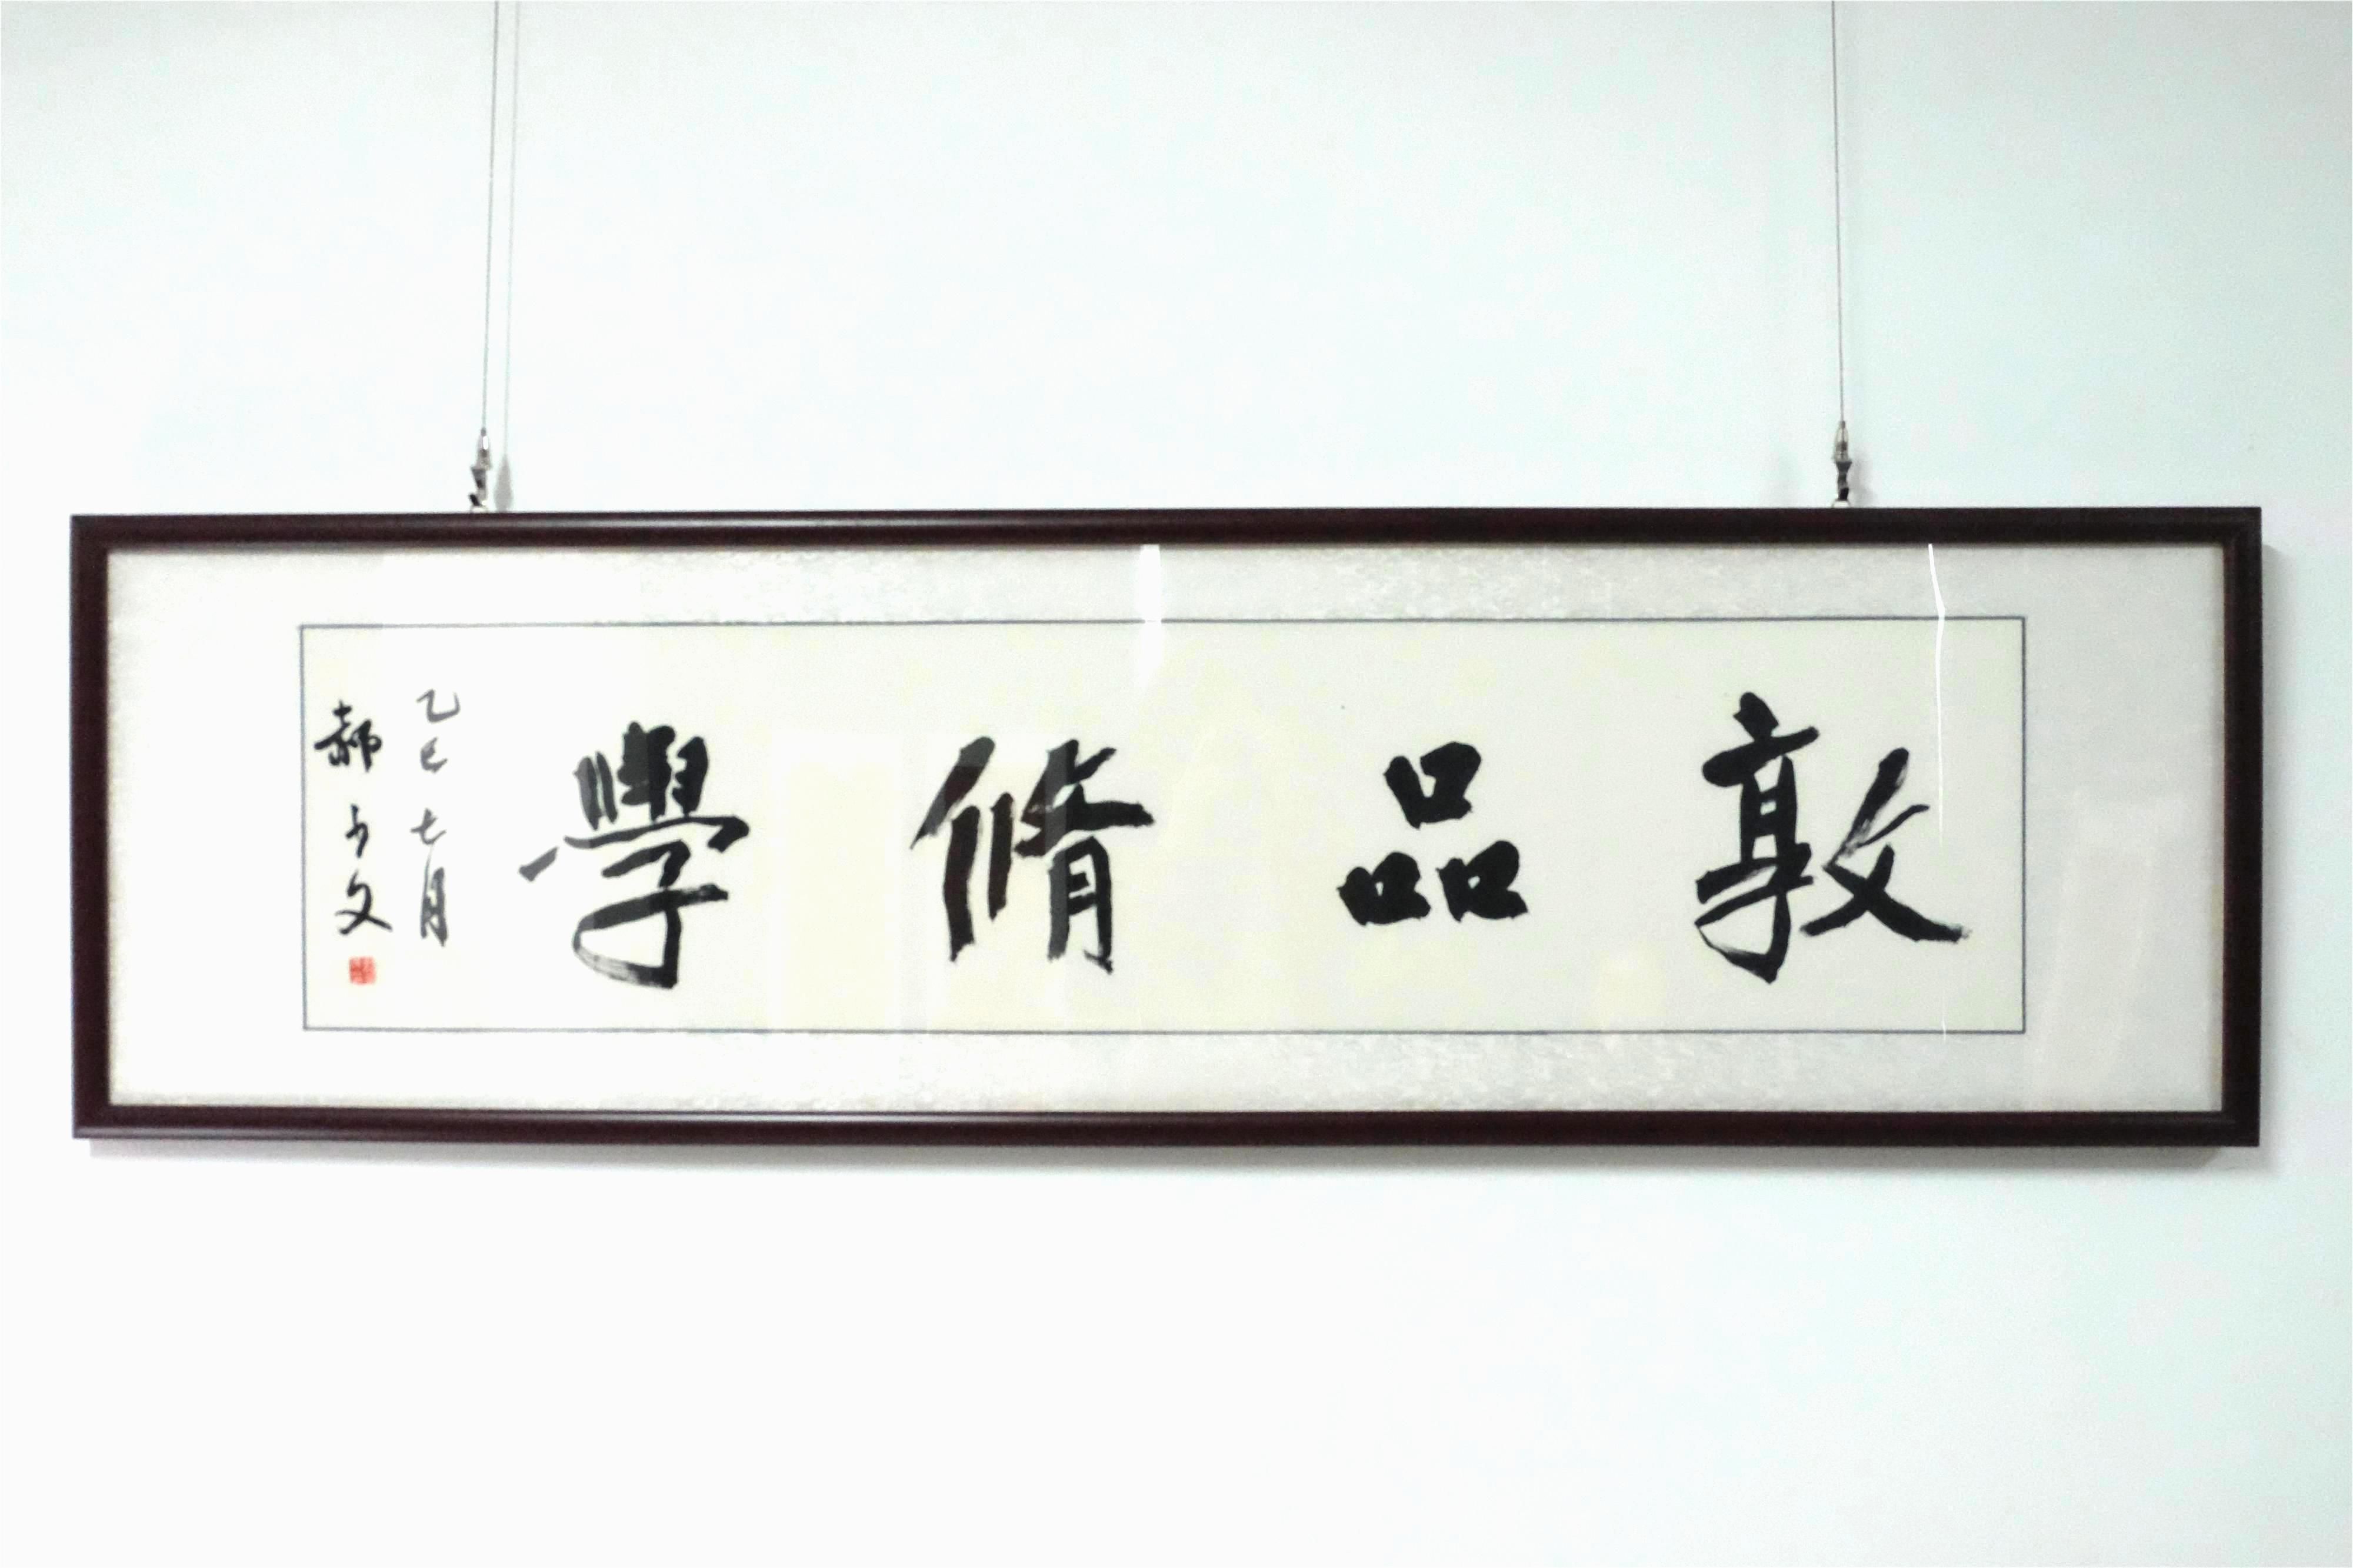 敦品脩學
乙巳七月
郝少文